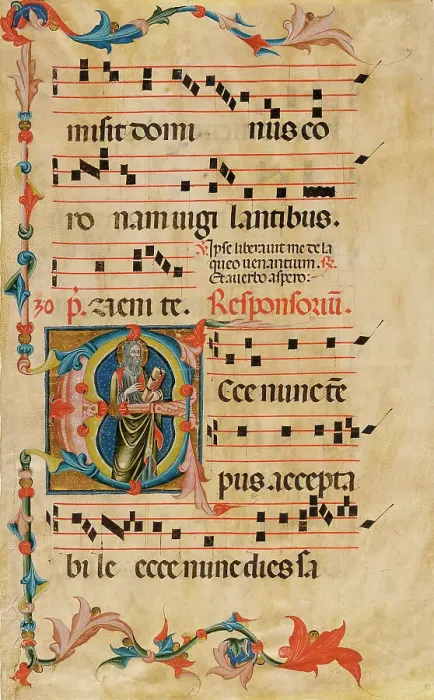 misit domi nus co
ro nam uigi lantibus.
℣. Ipse liberauit me de la
queo uenantium. ℟.
Et a uerbo aspero:~
30 p̄. uaeni te. Responsoriū.
Ecce nunc tē
pus. accepta
bi le ecce nunc dies sa